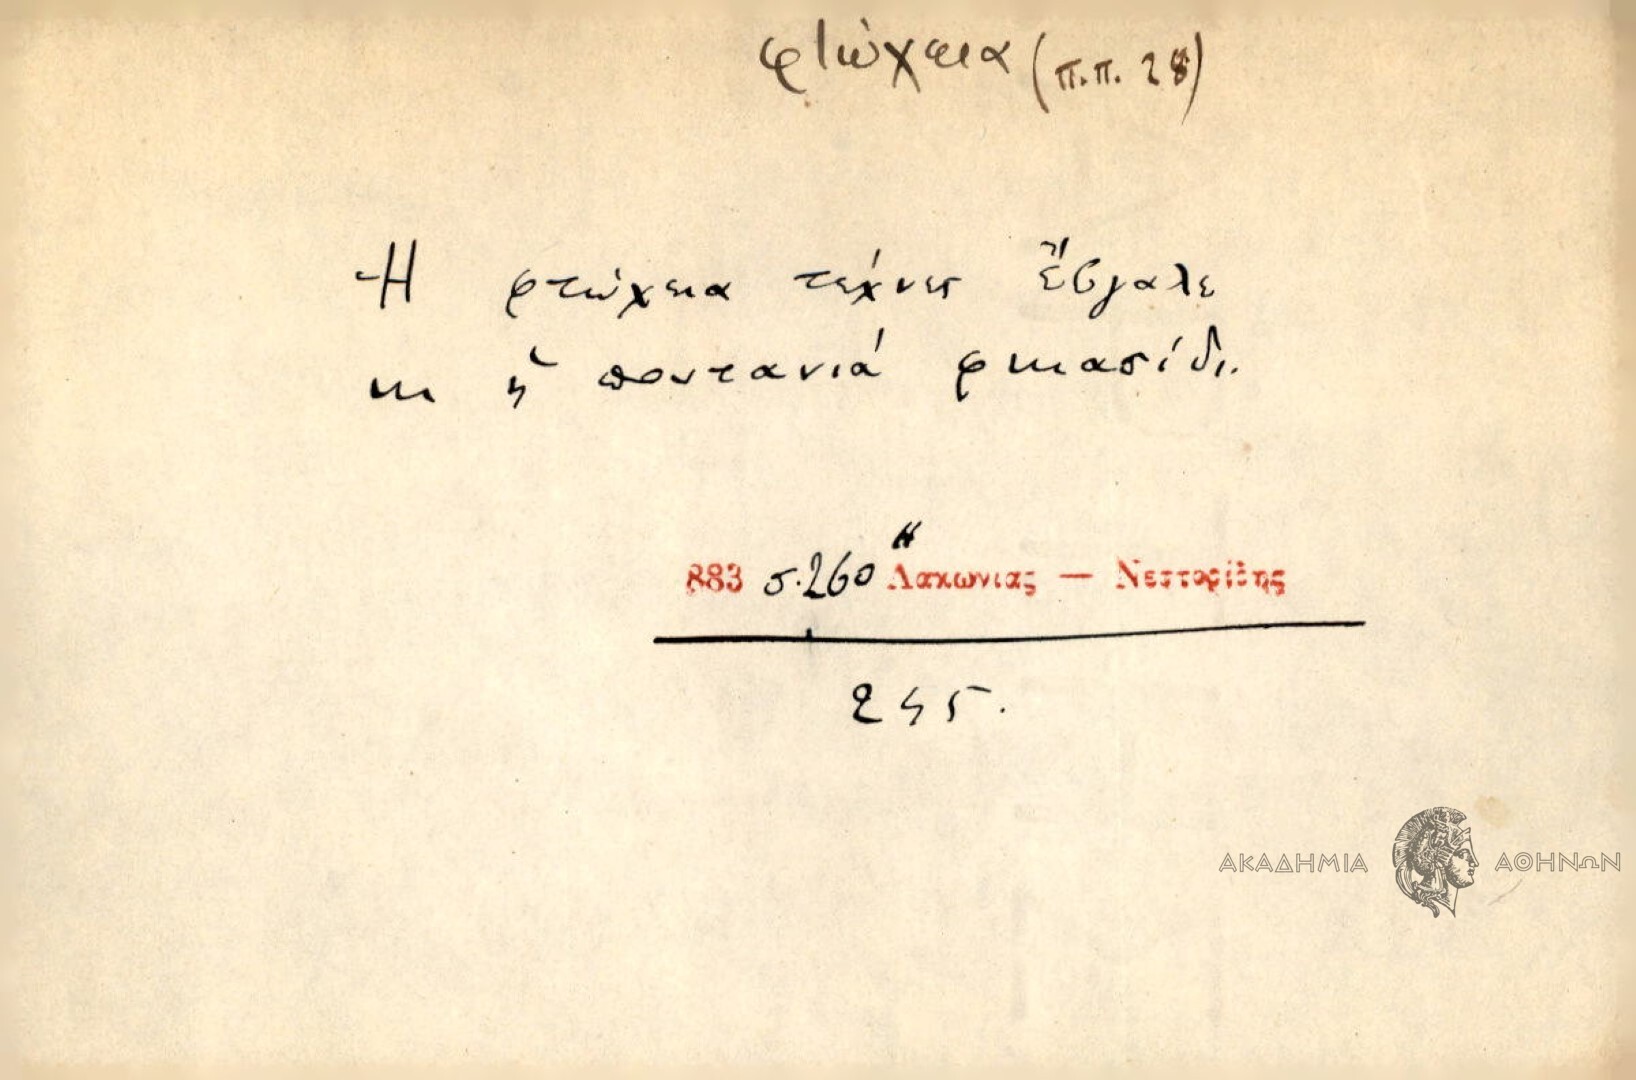 φτώχεια (π.π. 28)
Ἡ φτώχεια τέχνες ἔβγαλε
κι ἡ πουτανιά φκιασίδι.
883 σ. 260 Λακωνίας — Νεστορίδης
245.
ΑΚΑΔΗΜΙΑ ΑΘΗΝΩΝ